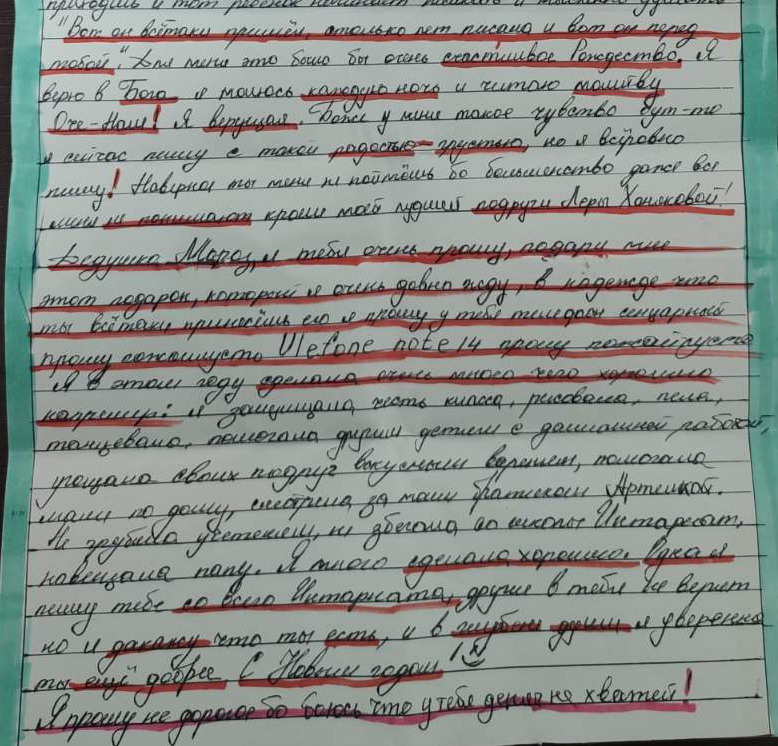 приходишь и тот ребёнок начинает
"Вот он всётаки пришёл, столько лет писала и вот он перед
тобой". Для меня это было бы очень счастливое Рождество. Я
верю в Бога я молюсь каждую ночь и читаю молитву
Оче-Наш! Я верущая. Боже у меня такое чувство бут-то
я сейчас пишу с такой радостью-грустью, но я всёровно
пишу! Наверное ты меня не поймёшь бо большенство даже все
меня не понимают кроме моей лудшей подруги Леры Хоняковой!
Дедушка Мороз, я тебя очень прошу, подари мне
этот подарок, который я очень давно жду, в надежде что
ты всётаки принесёшь его я прошу у тебя телефон сенцарный
прошу пожалуусто Ulefone note 14 прошу пожайлуусто
Я в этом году сделала очень много чего хорошего
напремер: я защищала честь класса, рисовала, пела,
танцевала, помогала другим детям с домашней работой,
угощала своих подруг вкусным варением, помогала
маме по дому, смотрела за моим братиком Артемкой.
Не грубила учетелям, не збегала со школы Интарнат,
навещала папу. Я много сделала хорошего. Одна я
пишу тебе со всего Интарната, другие в тебя не верят
но я дакажу что ты есть, и в глубине души я уверенна
ты ещё добрее. С Новым годом!
Я прошу не дорогое бо боюсь что у тебя денег не хватей!